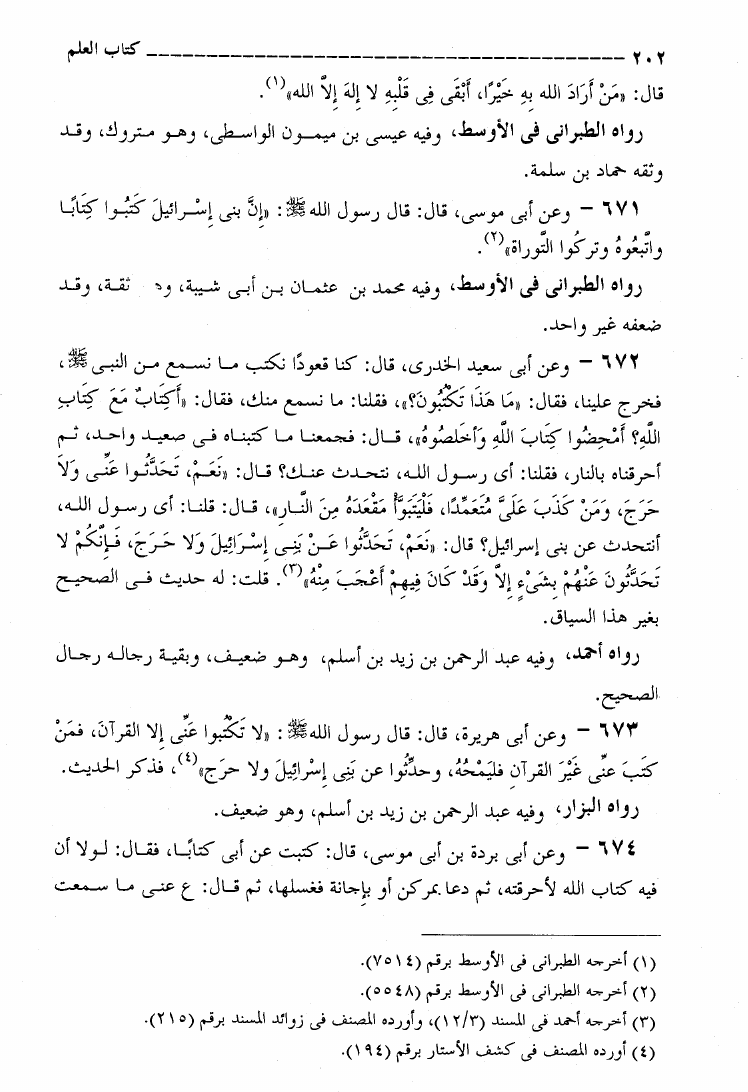 ٢٠٢ ــــــــــــــــــــــــــــــــــــــــ كتاب العلم
قال: «مَنْ أَرَادَ الله بِهِ خَيْرًا، أَبْقَى فِى قَلْبِهِ لا إلهَ إلاَّ الله»(١).
رواه الطبرانى فى الأوسط، وفيه عيسى بن ميمون الواسطى، وهو متروك، وقد
وثقه حماد بن سلمة.
٦٧١ – وعن أبى موسى، قال: قال رسول الله ﷺ: «إنَّ بنى إسْرائيلَ كَتَبُوا كِتَابًا
واتَّبعُوهُ وتركُوا التَّوراة»(٢).
رواه الطبرانى فى الأوسط، وفيه محمد بن عثمان بن أبى شيبة، وه ثقة، وقد
ضعفه غير واحد.
٦٧٢ – وعن أبى سعيد الخدرى، قال: كنا قعودًا نكتب ما نسمع من النبى ﷺ،
فخرج علينا، فقال: «مَا هَذَا تَكْتُبُونَ؟»، فقلنا: ما نسمع منك، فقال: «أَكِتَابٌ مَعَ كِتَابِ
اللَّهِ؟ أَمْحِضُوا كِتَابَ اللَّهِ وَأَخلصُوهُ»، قال: فجمعنا ما كتبناه فى صعيد واحد، ثم
أحرقناه بالنار، فقلنا: أى رسول الله، نتحدث عنك؟ قال: «نَعَمْ، تَحَدَّثُوا عَنِّى وَلاَ
حَرَجَ، وَمَنْ كَذَبَ عَلَىَّ مُتَعَمِّدًا، فَلْيَتَبَوَّأْ مَقْعَدَهُ مِنَ النَّارِ»، قال: قلنا: أى رسول الله،
أنتحدث عن بنى إسرائيل؟ قال: «نَعَمْ، تَحَدَّثُوا عَنْ بَنِى إِسْرَائِيلَ وَلا حَرَجَ، فَإِنَّكُمْ لا
تَحَدَّثُونَ عَنْهُمْ بِشَىْءٍ إِلاَّ وَقَدْ كَانَ فِيهِمْ أَعْجَبَ مِنْهُ»(٣). قلت: له حديث فى الصحيح
بغير هذا السياق.
رواه أحمد، وفيه عبد الرحمن بن زيد بن أسلم، وهو ضعيف، وبقية رجاله رجال
الصحيح.
٦٧٣ – وعن أبى هريرة، قال: قال رسول الله ﷺ: «لا تَكْتُبوا عَنِّى إلا القرآنَ، فمَنْ
كتَبَ عنِّى غَيْرَ القرآنِ فليَمْحُهُ، وحدِّثُوا عن بَنِى إسْرَائِيلَ ولا حرَج»(٤)، فذكر الحديث.
رواه البزار، وفيه عبد الرحمن بن زيد بن أسلم، وهو ضعيف.
٦٧٤ – وعن أبى بردة بن أبى موسى، قال: كتبت عن أبى كتابًا، فقال: لولا أن
فيه كتاب الله لأحرقته، ثم دعا بمركن أو بإجانة فغسلها، ثم قال: ع عنى ما سمعت
(١) أخرجه الطبرانى فى الأوسط برقم (٧٥١٤).
(٢) أخرجه الطبرانى فى الأوسط برقم (٥٥٤٨).
(٣) أخرجه أحمد فى المسند (١٢/٣)، وأورده المصنف فى زوائد المسند برقم (٢١٥).
(٤) أورده المصنف فى كشف الأستار برقم (١٩٤).